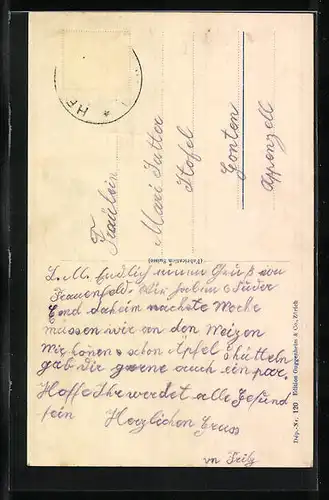 Fräulein
Mari Sutter
Hofel
Gonten
Appenzell
(Fabrication Suisse)
L. M. Endlich einen Gruss von
Frauenfeld. Wir haben
Emd daheim nächste Woche
müssen wir an den Weizen
Wir könen schon Äpfel schütteln
gäb dir gerne auch ein par.
Hoffe Ihr werdet alle Gesund
sein Herzlichen Gruss
vn Fritz
Dep.-Nr. 120 Edition Guggenheim & Co., Zürich
HE